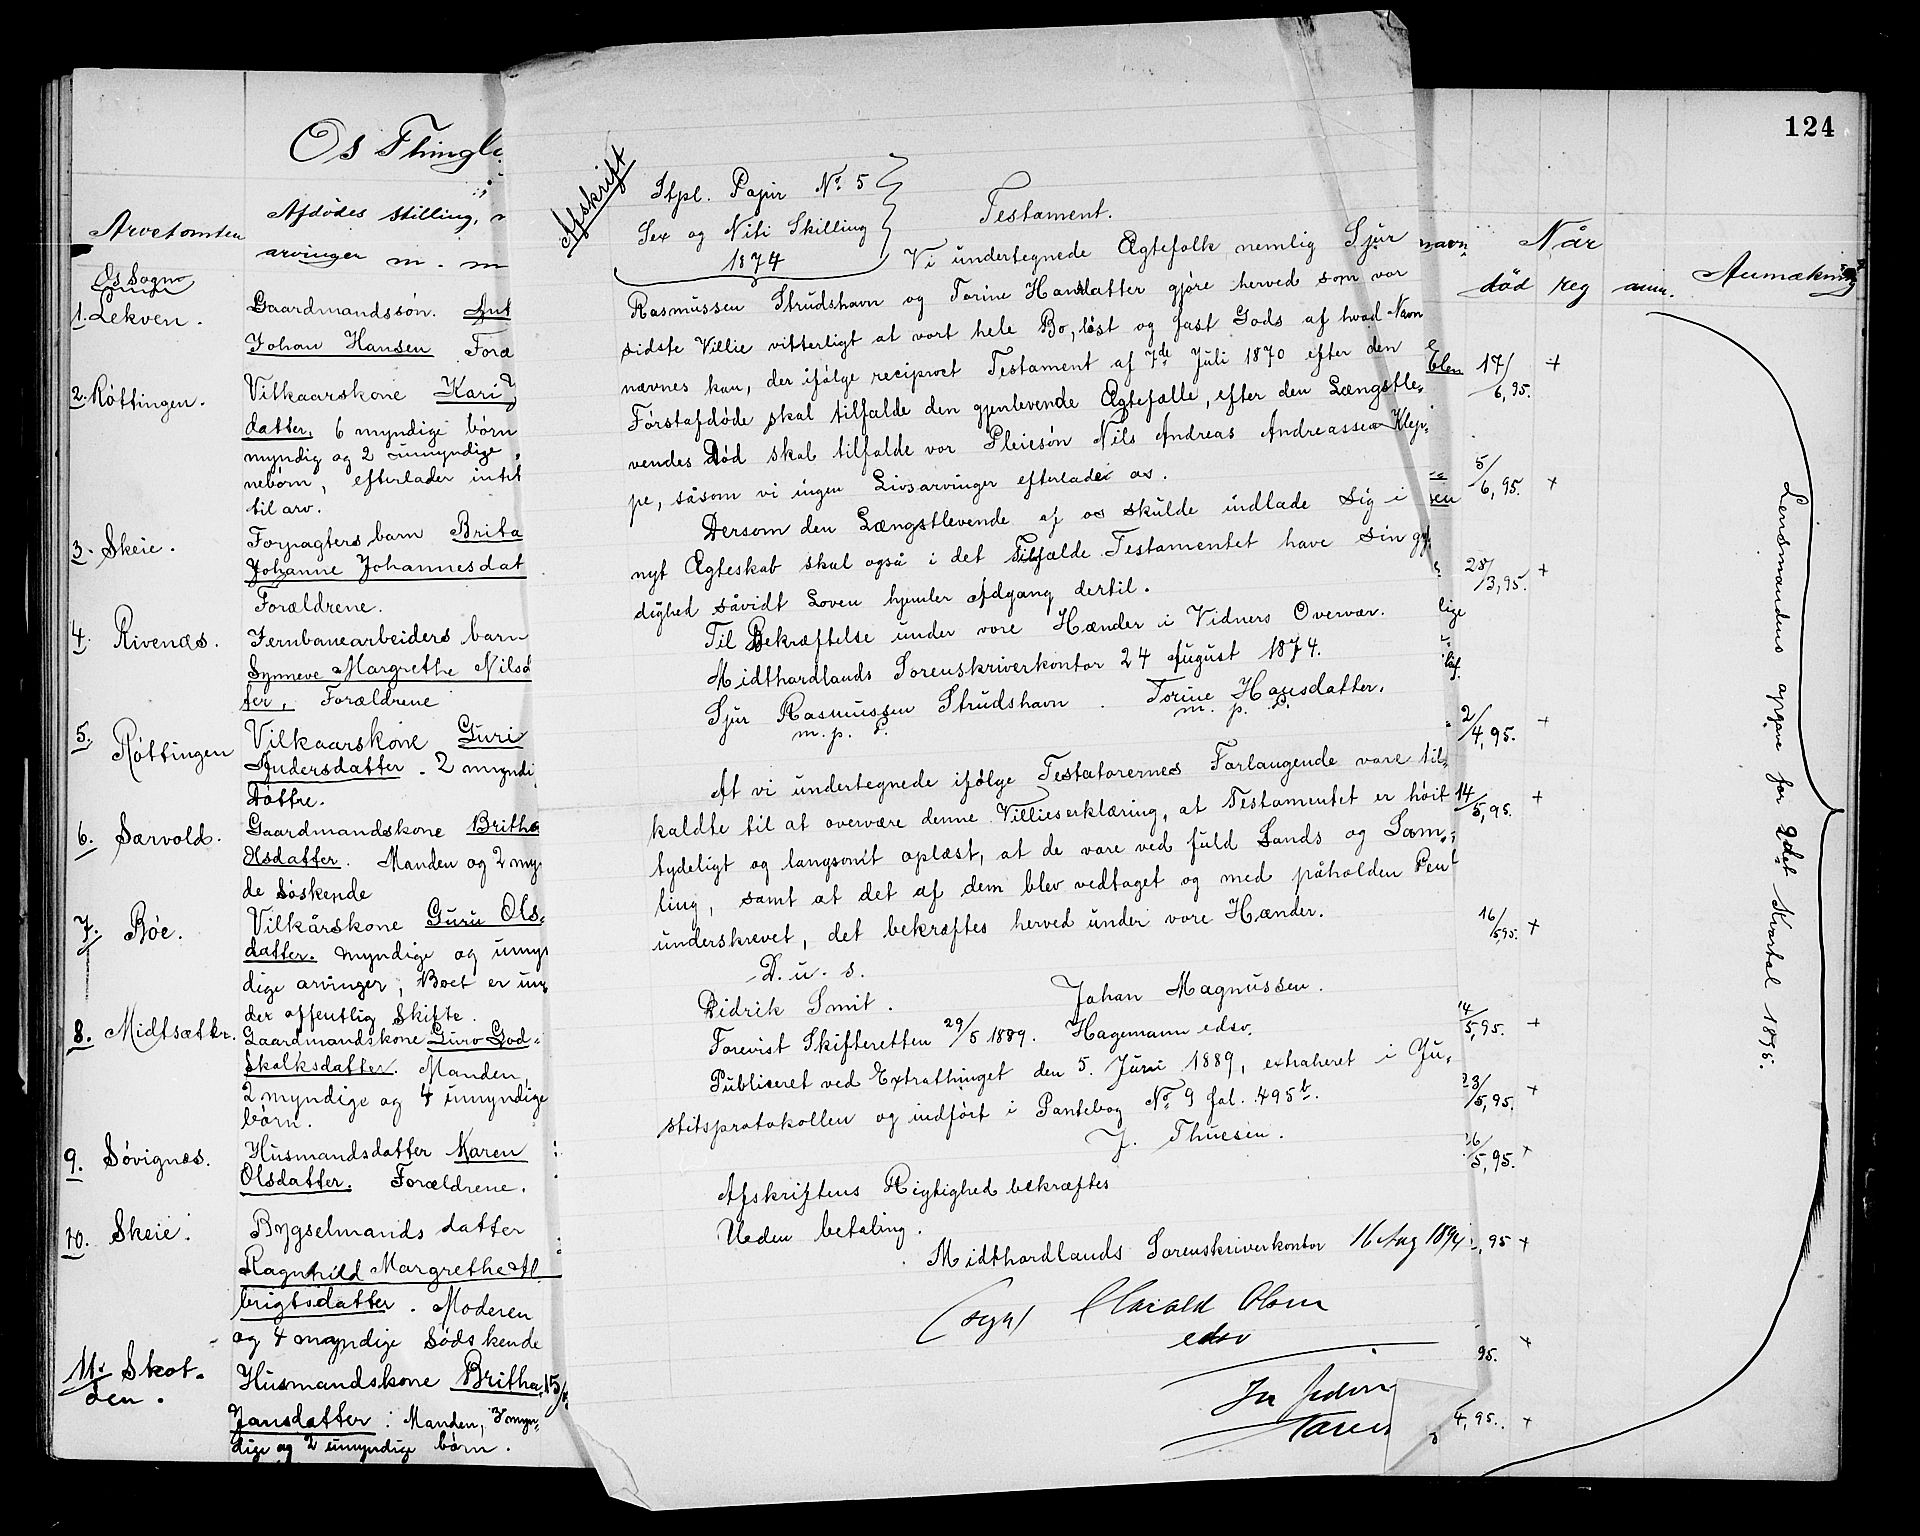 124
Os Thingl
Arvetomten
Afdødes stilling,
arvinger m. m
Os Sogn
1. Lekven.
Gaardmandssøn. Ant
Johan Hansen Foræ
2. Røttingen.
Vilkaarskone Kari
datter, 6 myndige børn
myndig og 2 umyndige
nebørn, efterlader intet
til arv.
3. Skeie.
Forpagters barn Brita
Johanne Johannesdat
Forældrene.
4. Rivenæs.
Jernbanearbeiders barn
Synneve Margrethe Nilsd
ter, Forældrene
5. Røttingen
Vilkaarskone Guri
Andersdatter. 2 myndi
Døttre.
6. Særvold.
Gaardmandskone Britha
Olsdatter. Manden og 2 my
de Søskende
7. Bøe.
Vilkårskone Guru Ols-
datter. myndige og umyn
dige arvinger; Boet er un
der offentlig Skifte.
8. Midtsætbr.
Gaardmandskone Guro God-
skalksdatter. Manden,
2 myndige og 4 umyndige
børn.
9. Søvignæs.
Husmandsdatter Karen
Olsdatter. Forældrene.
10. Skeie.
Bygselmands datter
Ragnhild Margrethe Al
brigtsdatter. Moderen
og 4 myndige Sødskende
11. Skot-
den.
Husmandskone Britha 15/
Jansdatter: Manden, 3 myn-
dige og 2 umyndige børn.
Afskrift
Stpl. Papir No. 5
Sex og Niti Skilling
1874
Testament.
Vi undertegnede Ægtefolk nemlig Sjur
Rasmussen Strudshavn og Torine Hansdatter gjøre herved som vor
sidste Villie vitterligt at vort hele Bo, løst og fast Gods af hvad Navn
nævnes kan, der ifølge reciproct Testament af 7de Juli 1870 efter den
Førstafdøde skal tilfalde den gjenlevende Ægtefælle, efter den Længstle-
vendes Død skal tilfalde vor Pleiesøn Nils Andreas Andreassen Klep-
pe, såsom vi ingen Livsarvinger efterlader os.
Dersom den Længstlevende af os skulde indlade sig i
nyt Ægteskab skal også i det Tilfælde Testamentet have sin gyl
dighed såvidt Loven hjemler Adgang dertil.
Til Bekræftelse under vore Hænder i Vidners Overvær.
Midthordlands Sorenskriverkontor 24 August 1874.
Sjur Rasmussen Strudshavn. Torine Hansdatter.
m. p. P. m. p. P.
At vi undertegnede ifølge Testatorernes Forlangende vare til-
kaldte til at overvære denne Villieserklæring, at Testamentet er høit
tydeligt og langsomt oplæst, at de vare ved fuld Sands og Sam-
ling, samt at det af dem blev vedtaget og med påholden Pen
underskrevet, det bekræftes herved under vore Hænder.
D. u. s.
Didrik Smit. Johan Magnussen.
Forevist Skifteretten 29/5 1889. Hagemann edsv.
Publiceret ved Extrathinget den 5. Juni 1889, extraheret i Ju-
stitsprotokollen og indført i Pantebog No. 9 fol. 495b.
J. Thuesen.
Afskriftens Rigtighed bekræftes
Uden betaling.
Midthordlands Sorenskriverkontor 16 Aug 1894
(sign) Harald Olsen
edsv
navn
Når
død reg anm. Anmærkning
Elen 17/6, 95. +
sen 5/6, 95. +
28/3, 95. +
lige
2/4, 95. +
14/5, 95. +
16/5, 95. +
14/5, 95. +
23/5, 95. +
26/5, 95. +
, 95 +
95. +
4, 95. +
Lensmandens opgave for 2det Kvartal 1895.